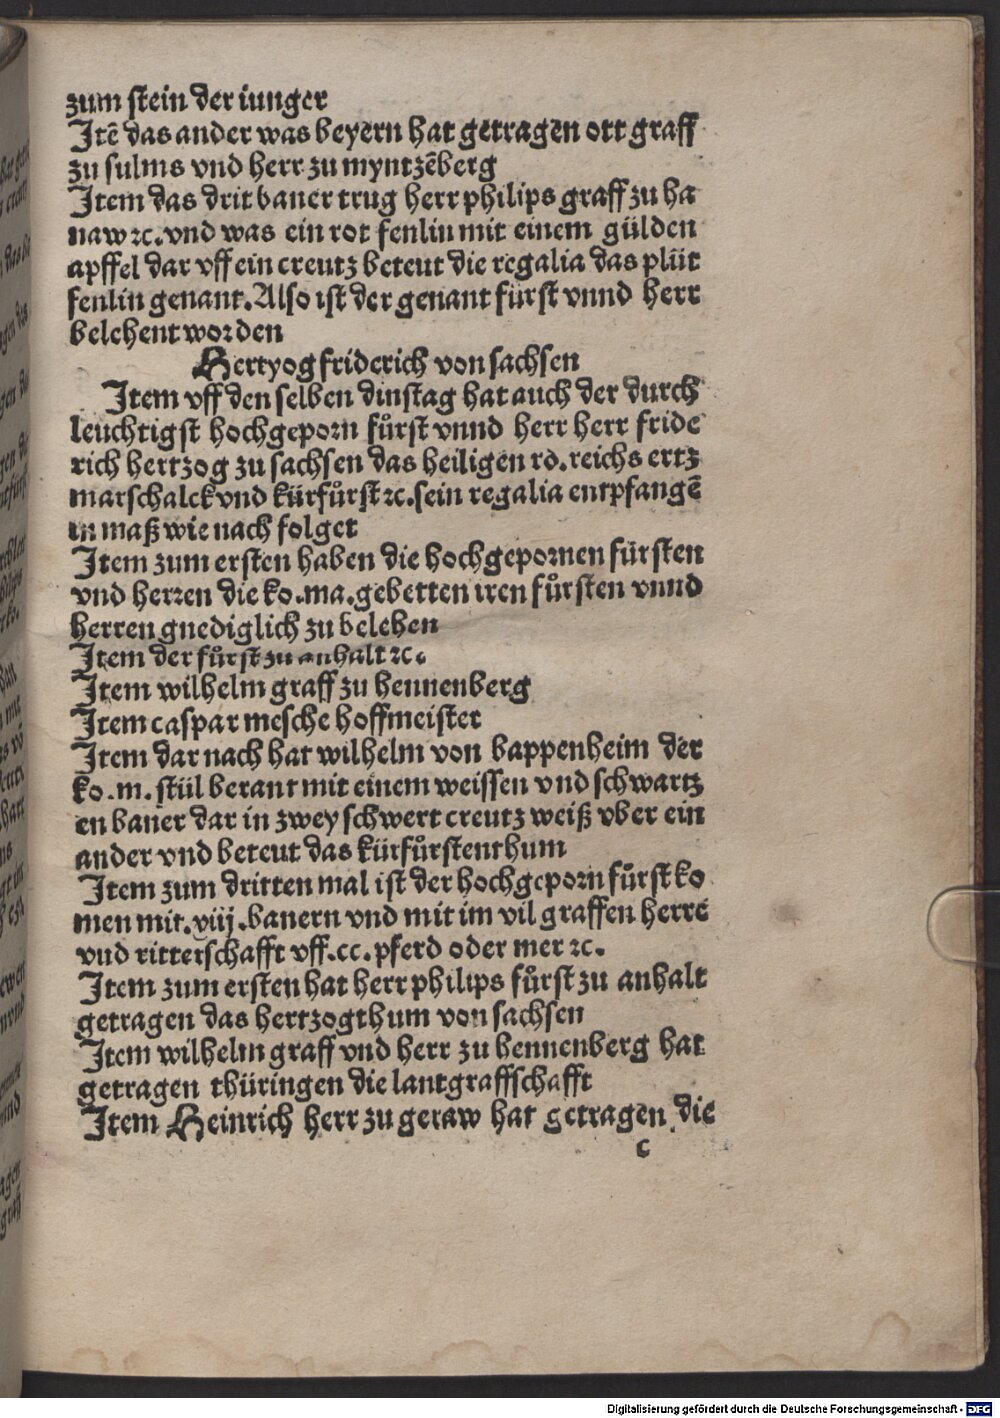 zum stein der iunger
Itē das ander was beyern hat getragen ott graff
zu sulms vnd herr zu myntzēberg
Item das drit baner trug herr philips graff zu ha
naw ⁊c. vnd was ein rot fenlin mit einem gülden
apffel dar vff ein creutz beteut die regalia das plüt
fenlin genant. Also ist der genant fürst vnnd herr
belehent worden
Hertyog friderich von sachsen
Item vff den selben dinstag hat auch der durch
leuchtigst hochgeporn fůrst vnnd herr herr fride
rich hertzog zu sachsen das heiligen rö. reichs ertz
marschalck vnd kürfůrst ⁊c. sein regalia entpfangē
in maß wie nach folget
Item zum ersten haben die hochgepornen fürsten
vnd herren die ko. ma. gebetten iren fůrsten vnnd
herren gnediglich zu belehen
Item der fůrst zu anhalt ⁊c.
Item wilhelm graff zu hennenberg
Item caspar mesche hoffmeister
Item dar nach hat wilhelm von bappenheim der
ko. m. stül berant mit einem weissen vnd schwartz
en baner dar in zwey schwert creutz weiß vber ein
ander vnd beteut das kürfůrstenthum
Item zum dritten mal ist der hochgeporn fůrst ko
men mit. viij. banern vnd mit im vil graffen herrē
vnd ritterschafft vff. cc. pferd oder mer ⁊c.
Item zum ersten hat herr philips fůrst zu anhalt
getragen das hertzogthum von sachsen
Item wilhelm graff vnd herr zu hennenberg hat
getragen thüringen die lantgraffschafft
Item Heinrich herr zu geraw hat getragen die
c
Digitalisierung gefördert durch die Deutsche Forschungsgemeinschaft - DFG